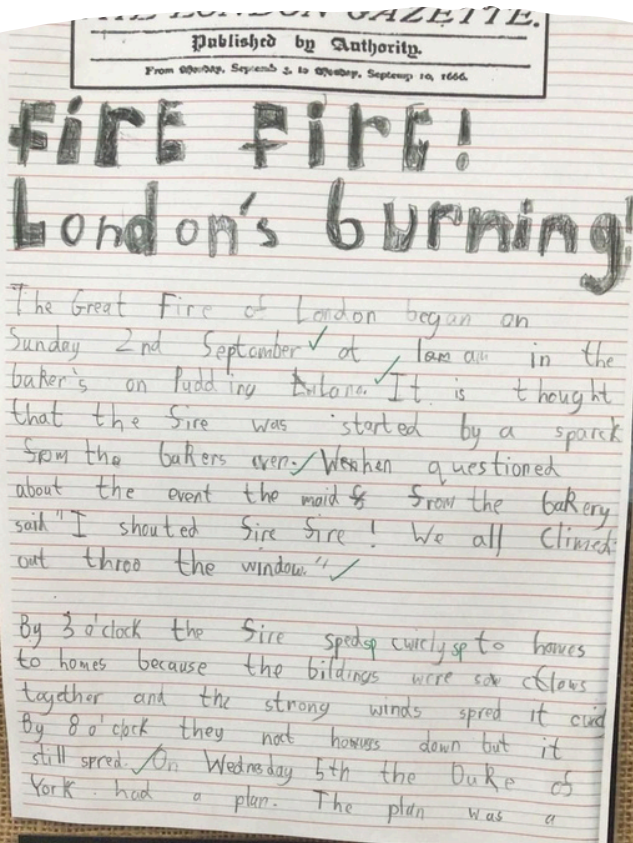 THE LONDON GAZETTE.
Published by Authority.
From Monday, Septemb 3, to Monday, Septemp 10, 1666.
FirE FirE!
London's burning!
The Great Fire of London began on
Sunday 2nd September at 1am in the
baker's on Pudding It is thought
that the fire was started by a sparck
from the bakers questioned
about the event the maid from the bakery
said "I shouted fire fire! We all Climed
out throo the window."
By 3 o'clock the fire sped sp cwicly sp to houses
to homes because the bildings were sow clows
together and the strong winds spred it
By 8 o'clock they not howses down but it
still spred. On Wednesday 5th the Duke of
York had a plan. The plan was a